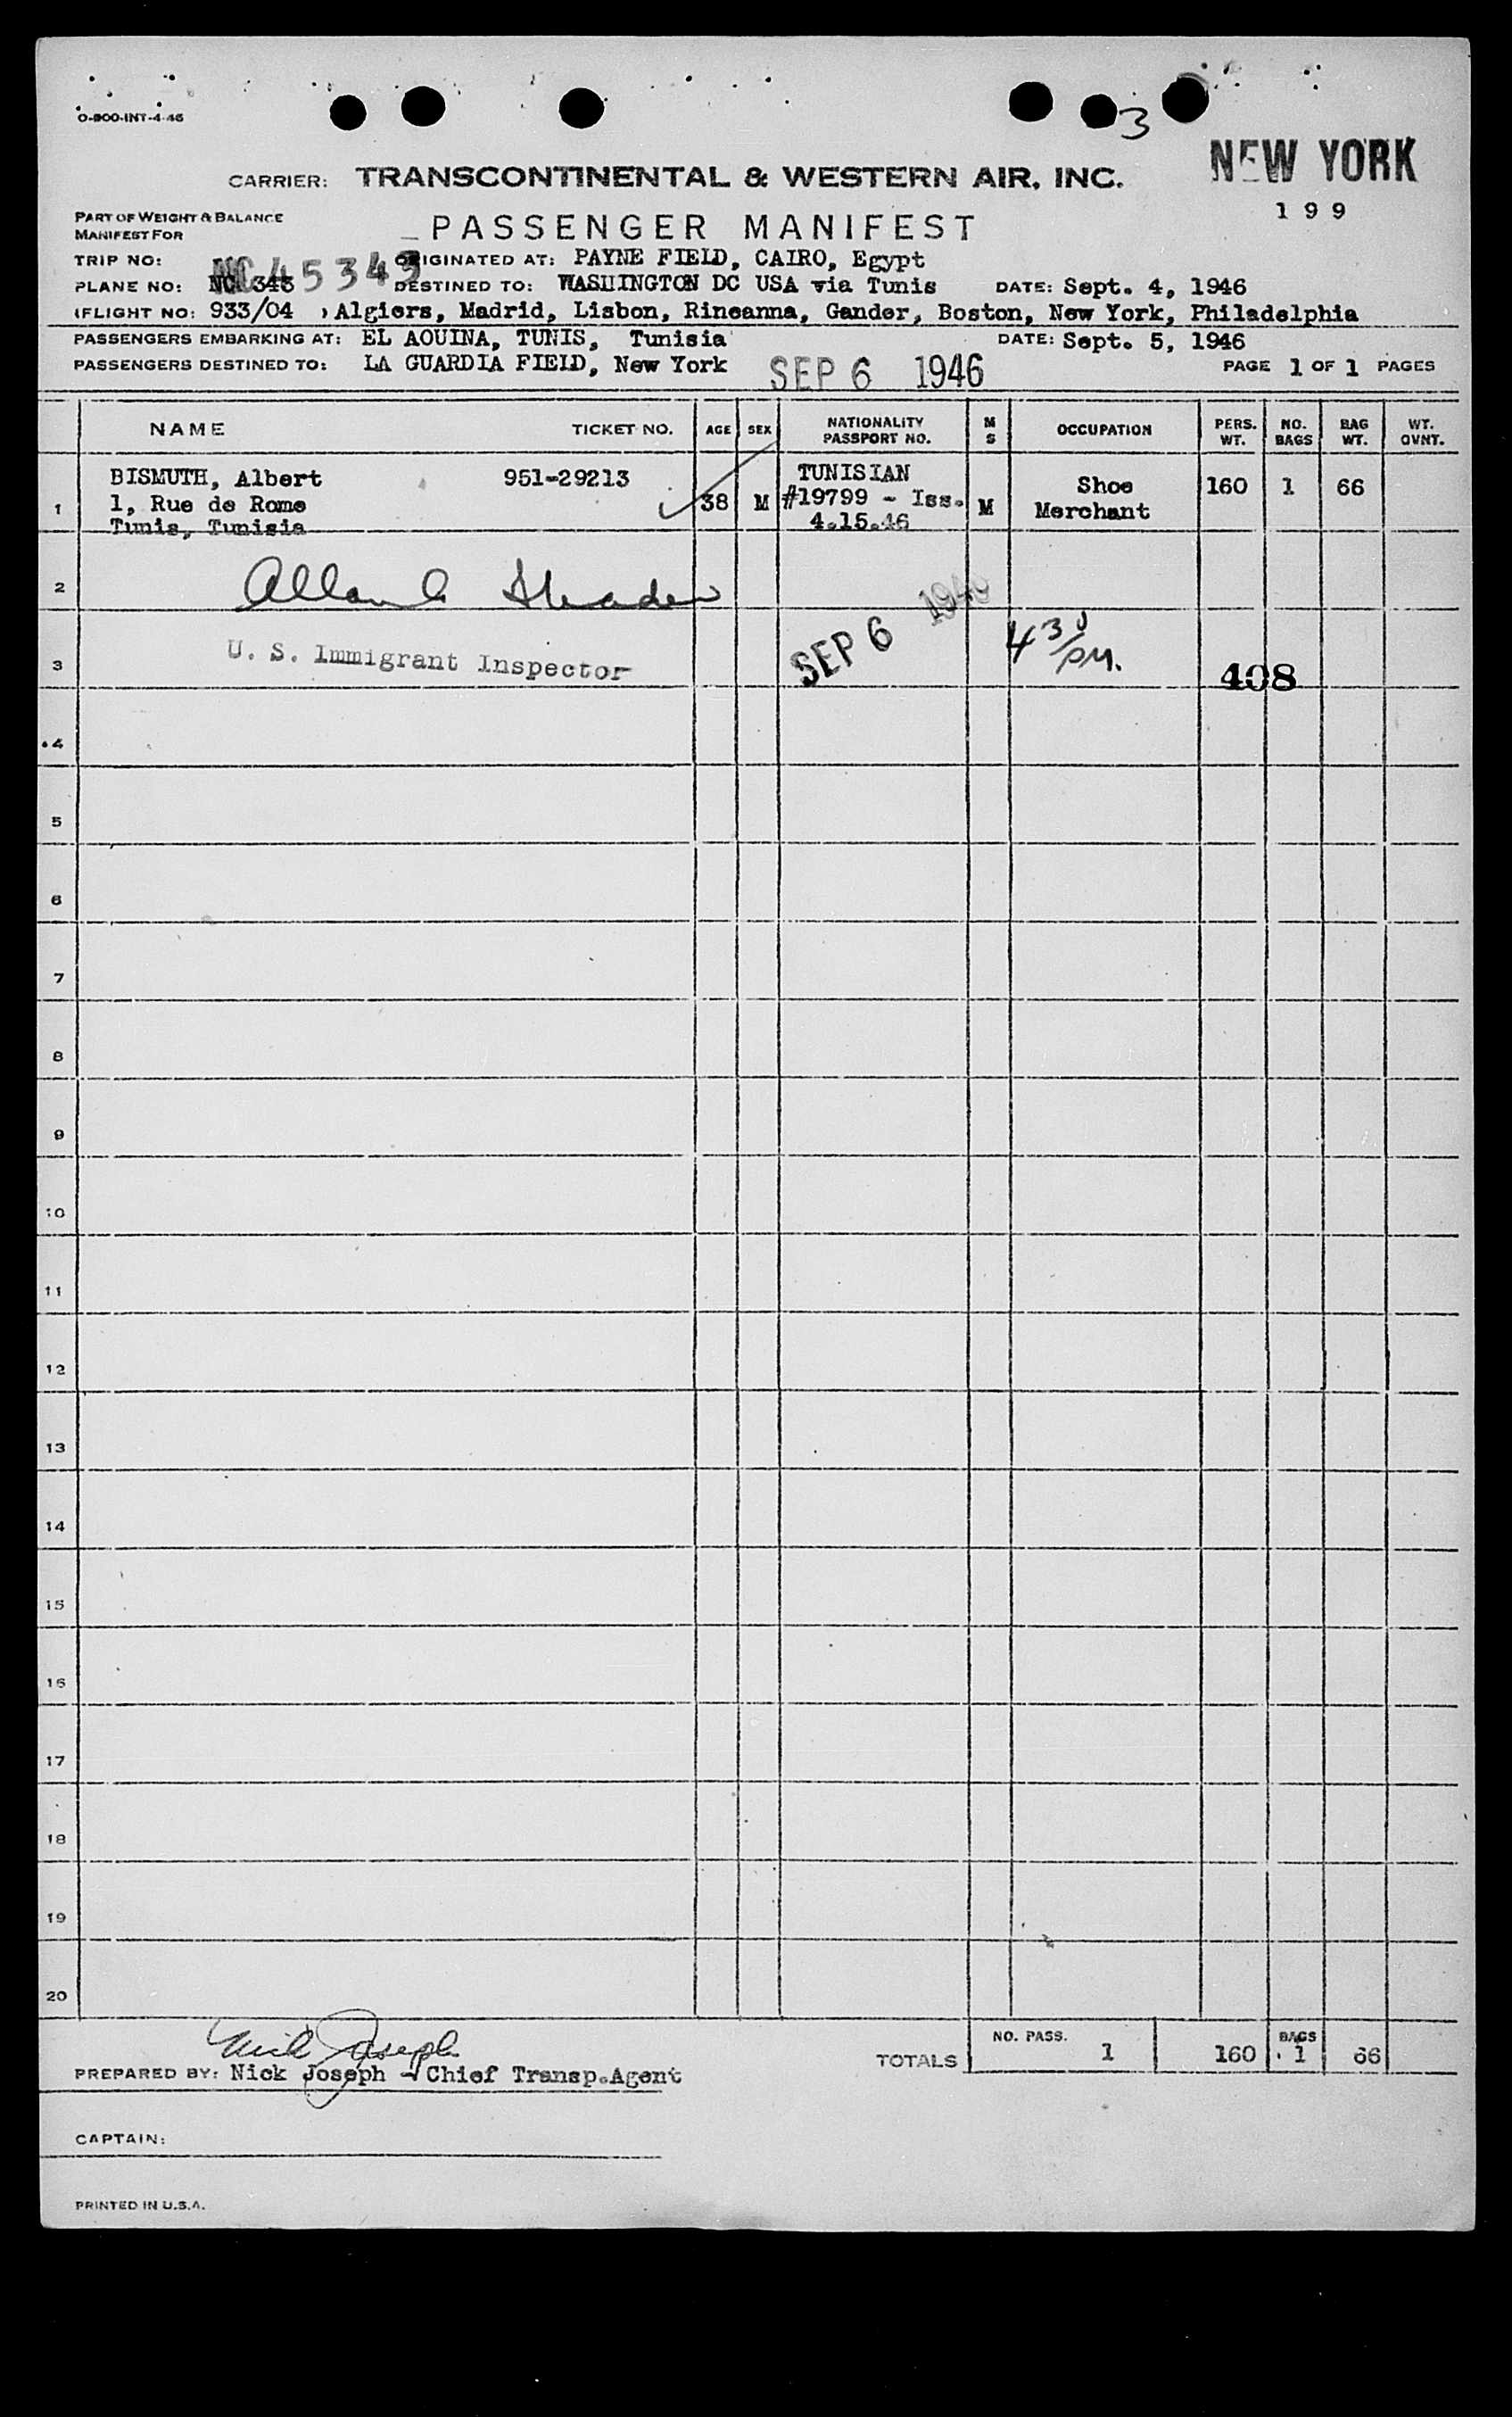 O-800-INT-4-46
3
NEW YORK
CARRIER: TRANSCONTINENTAL & WESTERN AIR, INC.
199
PART OF WEIGHT & BALANCE
MANIFEST FOR
PASSENGER MANIFEST
TRIP NO: ORIGINATED AT: PAYNE FIELD, CAIRO, Egypt
NC 45343
PLANE NO: DESTINED TO: WASHINGTON DC USA via Tunis DATE: Sept. 4, 1946
(FLIGHT NO: 933/04 ) Algiers, Madrid, Lisbon, Rineanna, Gander, Boston, New York, Philadelphia
PASSENGERS EMBARKING AT: EL AOUINA, TUNIS, Tunisia DATE: Sept. 5, 1946
PASSENGERS DESTINED TO: LA GUARDIA FIELD, New York SEP 6 1946 PAGE 1 OF 1 PAGES
NAME TICKET NO. AGE SEX NATIONALITY PASSPORT NO. M S OCCUPATION PERS. WT. NO. BAGS BAG WT. WT. OVNT.
BISMUTH, Albert 951-29213 TUNISIAN Shoe 160 1 66
1 1, Rue de Rome 38 M #19799 - Iss. M Merchant
Tunis, Tunisia 4.15.46
2 Allan
3 U. S. Immigrant Inspector SEP 6 1946 4 30/PM. 408
4
5
6
7
8
9
10
11
12
13
14
15
16
17
18
19
20
Nick Joseph
TOTALS NO. PASS. 1 160 BAGS 1 66
PREPARED BY: Nick Joseph - Chief Transp.Agent
CAPTAIN:
PRINTED IN U.S.A.